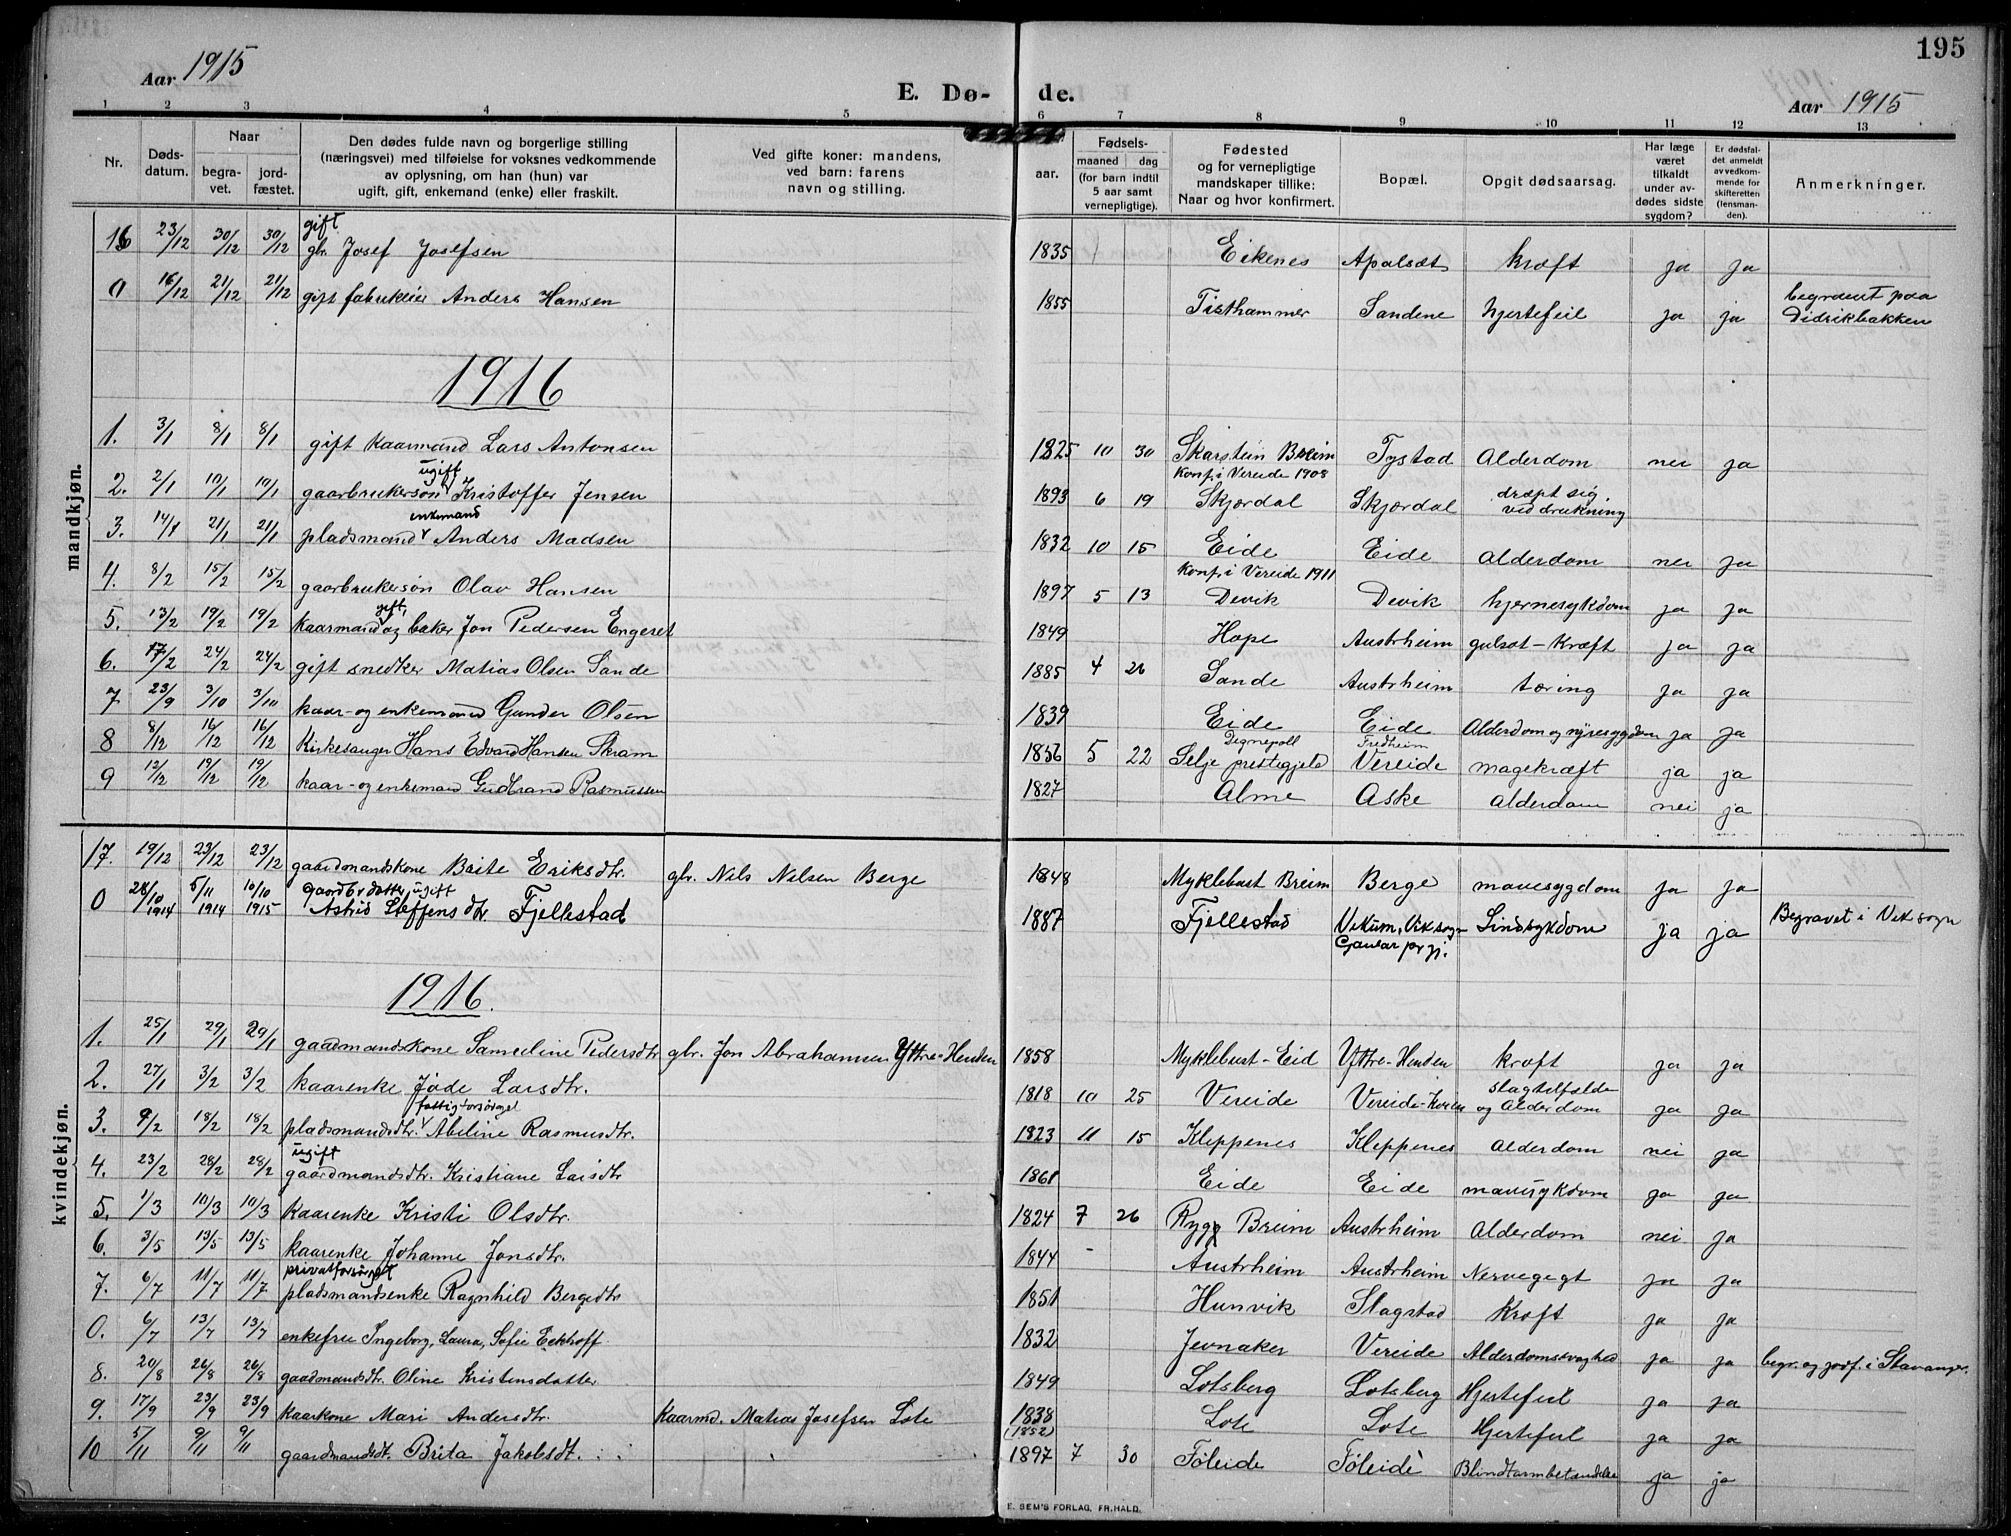 195
Aar 1915
E. Dø- de.
Aar 1915
1 2 3 4 5 6 7 8 9 10 11 12 13
Nr.
Døds-datum.
Naar
begra-vet.
jord-fæstet.
Den dødes fulde navn og borgerlige stilling
(næringsvei) med tilføielse for voksnes vedkommende
av oplysning, om han (hun) var
ugift, gift, enkemand (enke) eller fraskilt.
Ved gifte koner: mandens,
ved barn: farens
navn og stilling.
aar.
Fødsels-
maaned dag
(for barn indtil
5 aar samt
vernepligtige).
Fødested
og for vernepligtige
mandskaper tillike:
Naar og hvor konfirmert.
Bopæl.
Opgit dødsaarsag.
Har læge
været
tilkaldt
under av-
dødes sidste
sygdom?
Er dødsfal-
det anmeldt
av vedkom-
mende for
skifteretten
(lensman-
den).
Anmerkninger.
mandkjøn.
16 23/12 30/12 30/12 gift gbr. Josef Josefsen 1835 Eikenes Apalsæt kræft ja ja
0 16/12 21/12 21/12 gift fabrikeier Anders Hansen 1855 Tisthammer Sandene hjertefeil ja ja begravet paa Didrikbakken
1916
1. 3/1 8/1 8/1 gift kaarmand Lars Antonsen 1825 10 30 Skarstein Breim Tystad Alderdom nei ja
2. 2/1 10/1 10/1 gaarbrukersøn ugift Kristoffer Jensen 1893 6 19 Konf. i Vereide 1908 Skjærdal Skjærdal dræpt sig ved drukning
3. 14/1 21/1 21/1 pladsmand enkemand Anders Madsen 1832 10 15 Eide Eide Alderdom nei ja
4. 8/2 15/2 15/2 gaarbrukersøn Olav Hansen 1897 5 13 Konf. i Vereide 1911 Devik Devik hjernesykdom ja ja
5. 13/2 19/2 19/2 kaarmand og gift, baker Jon Pedersen Engeset 1849 Hope Austrheim gulsot - kræft ja ja
6. 17/2 24/2 24/2 gift snedker Matias Olsen Sande 1885 4 26 Sande Austrheim tæring ja ja
7 23/9 3/10 3/10 kaar- og enkemand Gunder Olsen 1839 Eide Eide Alderdom og nyresygdom ja ja
8 8/12 16/12 16/12 Kirkesanger Hans Edvard Hansen Skram 1856 5 22 Degnepoll Selje prestegjeld Fredheim Vereide magekræft ja ja
9 12/12 19/12 19/12 kaar- og enkemand Gudbrand Rasmussen 1827 Alme Aske Alderdom nei ja
kvindekjøn.
17. 19/12 23/12 23/12 gaardmandskone Brite Eriksdtr. gbr. Nils Nilsen Berge 1848 Myklebust Breim Berge mavesygdom ja ja
0 28/10 1914 5/11 1914 10/10 1915 gaardbr datter, ugift Astrid Steffensdtr Fjellestad 1887 Fjellestad Vikum, Vik sogn Gaular prgj. Sindsykdom ja ja Begravet i Vik sogn
1916.
1. 25/1 29/1 29/1 gaardmandskone Sameline Pedersdtr gbr. Jon Abrahamsen Yttre-Henden 1858 Myklebust - Eid Yttre-Henden kræft ja ja
2. 27/1 3/2 3/2 kaarenke Jøde Larsdtr. 1818 10 25 Vereide slagtilfælde og Alderdom ja ja
3. 9/2 18/2 18/2 pladsmandsdtr. fattigforsørget Abeline Rasmusdtr. 1823 11 15 Kleppenes Kleppenes Alderdom nei ja
4. 23/2 28/2 28/2 ugift gaardmandsdtr. Kristiane Larsdtr 1861 Eide Eide mavesykdom ja ja
5. 1/3 10/3 10/3 kaarenke Kristi Olsdtr. 1824 7 26 Rygg Breim Austrheim Alderdom nei ja
6. 3/5 13/5 13/5 kaarenke Johanne Jonsdtr. 1844 - Austrheim Austrheim Nervegigt ja ja
7. 6/7 11/7 11/7 privatforsørget pladsmandsenke Ragnhild Bergedtr 1851 Hunvik Slagstad Kræft ja ja
0. 6/7 13/7 13/7 enkefru Ingeborg, Laura, Sofie Eckhoff 1832 Jevnaker Vereide Alderdomssvaghed ja ja begr. og jordf. i Stavanger.
8. 20/8 26/8 26/8 gaardmandsdtr. Oline Kristensdatter 1849 Lotsberg Lotsberg Hjertefeil ja ja
9. 17/9 23/9 23/9 kaarkone Mari Andersdtr. Kaarmd. Matias Josefsen Lote 1838 (1852) Lote Lote Hjertefeil ja ja
10 5/11 9/11 9/11 gaardmandsdt. Brita Jakobsdt. 1897 7 30 Føleide Føleide Blindtarmbetændelse ja ja
E. SEM'S FORLAG, FR.HALD.